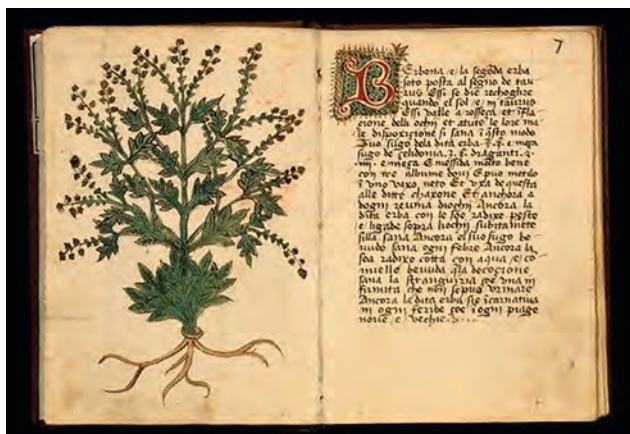 7
BErbona /e/ la segõda erba
soto posta al segno de tau
rus Essi se die rechoghre
quando el sol /e/ in taurus
Essi valle a rosseça et īfla
cione delli ochi et atute le lore ma
le disposicione si sana ī q̃sto modo
sugo dela dita erba e meça
sugo de çelidonia draganti
e meça E messida molto bene
con tre albume dovi E puo metilo
ī uno vaxo neto Et uxa de questa
alle ditte chaxone Et anchora a
dogni reuma diochi Ancora la
dita erba con le soe radixe peste
e ligade sopra liochi subitamẽte
silla sana Ancora el suo sugo be
vudo sana ogni febre Ancora la
soa radixe cotta con aqua /e/ co
miello bevuda q̃lla decocione
sana la stranguria çoe una in
firmita che non se puo urinare
Ancora la dita erba sie īcarnativa
in ogni feride çoe ī ogni piage
nove /e/ vechie